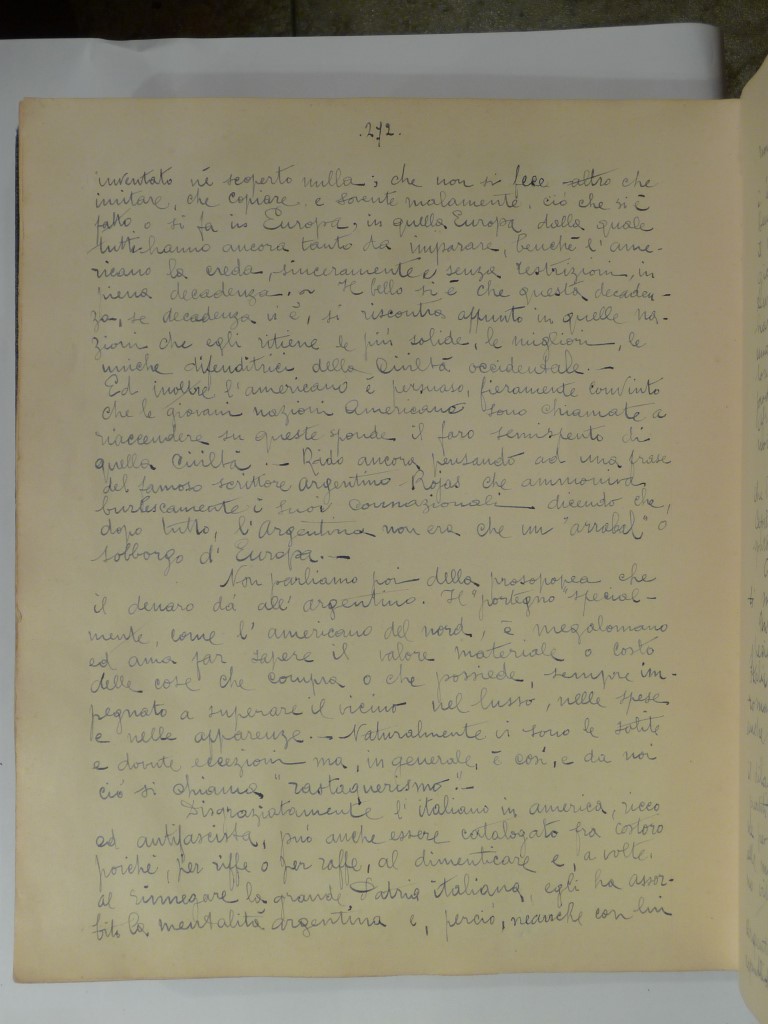 .272.
inventato nè scoperto nulla; che non si fece altro che
imitare, che copiare e sovente malamente, ciò che si è
fatto o si fa in Europa, in quella Europa dalla quale
tutti hanno ancora tanto da imparare, benchè l'ame-
ricano la creda, sinceramente e senza restrizioni, in
piena decadenza. ~ Il bello si è che questa decaden-
za, se decadenza vi è, si riscontra appunto in quelle na-
zioni che egli ritiene le più solide, le migliori, le
uniche difenditrici della Civiltà occidentale.-
Ed inoltre l'americano è persuaso, fieramente convinto
che le giovani nazioni Americane sono chiamate a
riaccendere su queste sponde il faro semispento di
quella Civiltà.- Rido ancora pensando ad una frase
del famoso scrittore Argentino Rojas che ammoniva
burlescamente i suoi connazionali dicendo che,
dopo tutto, l'Argentina non era che un "arrabal" o
sobborgo d'Europa.-
Non parliamo poi della prosopopea che
il denaro dà all'argentino. Il "portegno" special-
mente, come l'americano del nord, è megalomano
ed ama far sapere il valore materiale o costo
delle cose che compra o che possiede, sempre im-
pegnato a superare il vicino nel lusso, nelle spese
e nelle apparenze.- Naturalmente vi sono le solite
e dovute eccezioni ma, in generale, è così, e da noi
ciò si chiama "rastaquerismo".-
Disgraziatamente l'italiano in america, ricco
ed antifascista, può anche essere catalogato fra costoro
poichè, per riffe o per raffe, al dimenticare e, a volte,
al rinnegare la grande Patria italiana, egli ha assor-
bito la mentalità argentina e, perciò, neanche con lui